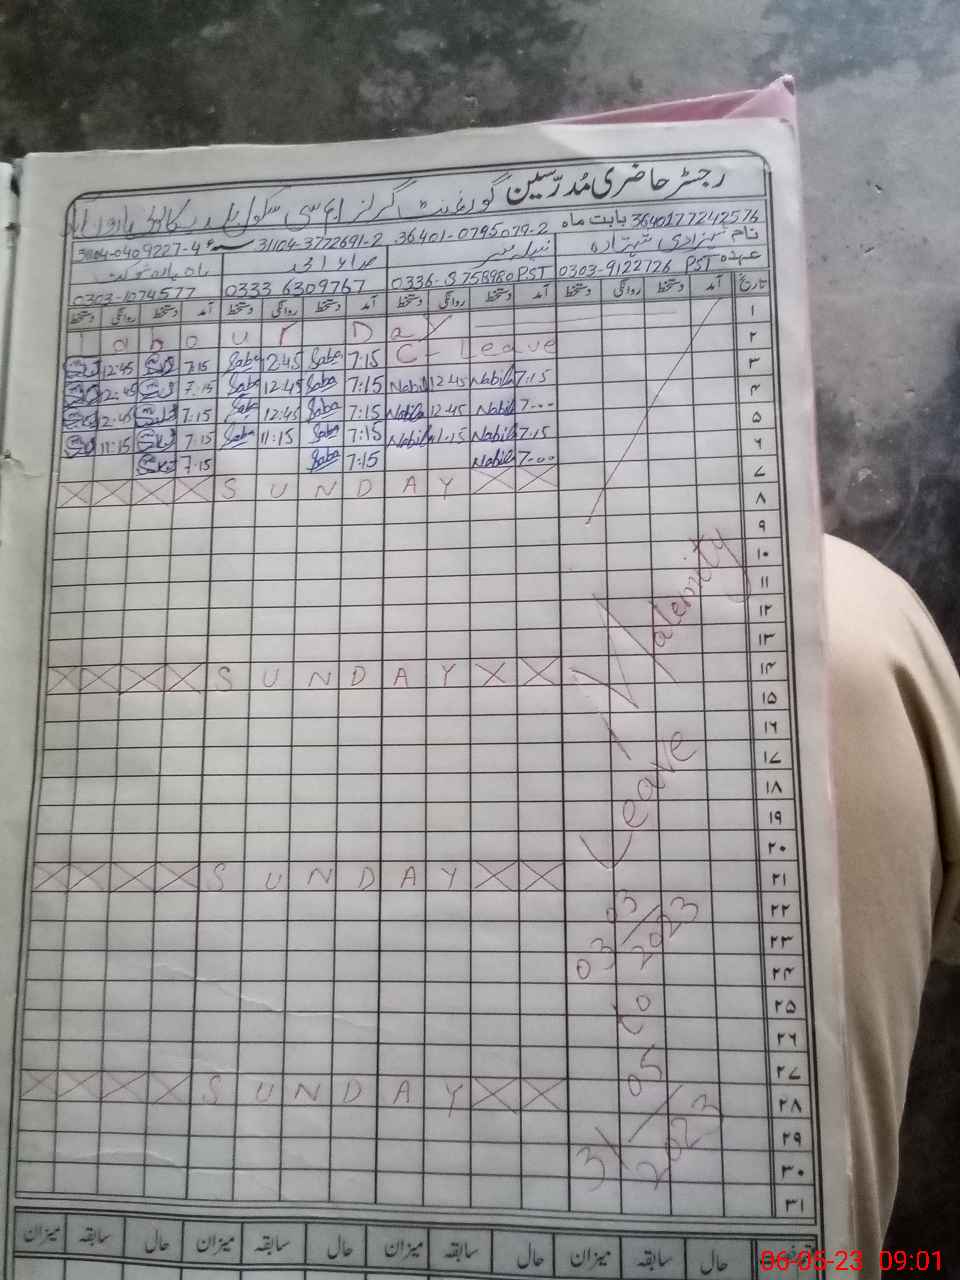 رجسٹر حاضری مُدرّسین گورنمنٹ گرلز ایم سی سکول
بابت ماہ
3640177242576 36401-0795079-2 31104-3772691-2
نام شہزادی
عہدہ PST 0303-9122726 PST 0336-8758980 0333 6309767 0303-1074577
تاریخ آمد دستخط روانگی دستخط آمد دستخط روانگی دستخط آمد دستخط روانگی دستخط آمد دستخط روانگی دستخط
۱ Labour Day
۲ C-Leave 7:15 Saba 12:45 Saba 7:15 12:45
۳ 7:15 Nabila 12:45 Nabila 7:15 Saba 12:45 Saba 7:15 12:45
۴ 7:00 Nabila 12:45 Nabila 7:15 Saba 12:45 Saba 7:15 12:45
۵ 7:15 Nabila 11:15 Nabila 7:15 Saba 11:15 Saba 7:15 11:15
۶ 7:00 Nabila 7:15 Saba 7:15
۷ SUNDAY
۸
۹
۱۰
۱۱
۱۲
۱۳
۱۴ SUNDAY
۱۵
۱۶
۱۷
۱۸
۱۹
۲۰
۲۱ SUNDAY
۲۲
۲۳
۲۴
۲۵
۲۶
۲۷
۲۸ SUNDAY
۲۹
۳۰
۳۱
Maternity
Leave
03/03/2023
to
31/05/2023
حال سابقہ میزان حال سابقہ میزان حال سابقہ میزان حال سابقہ میزان
06-05-23 09:01